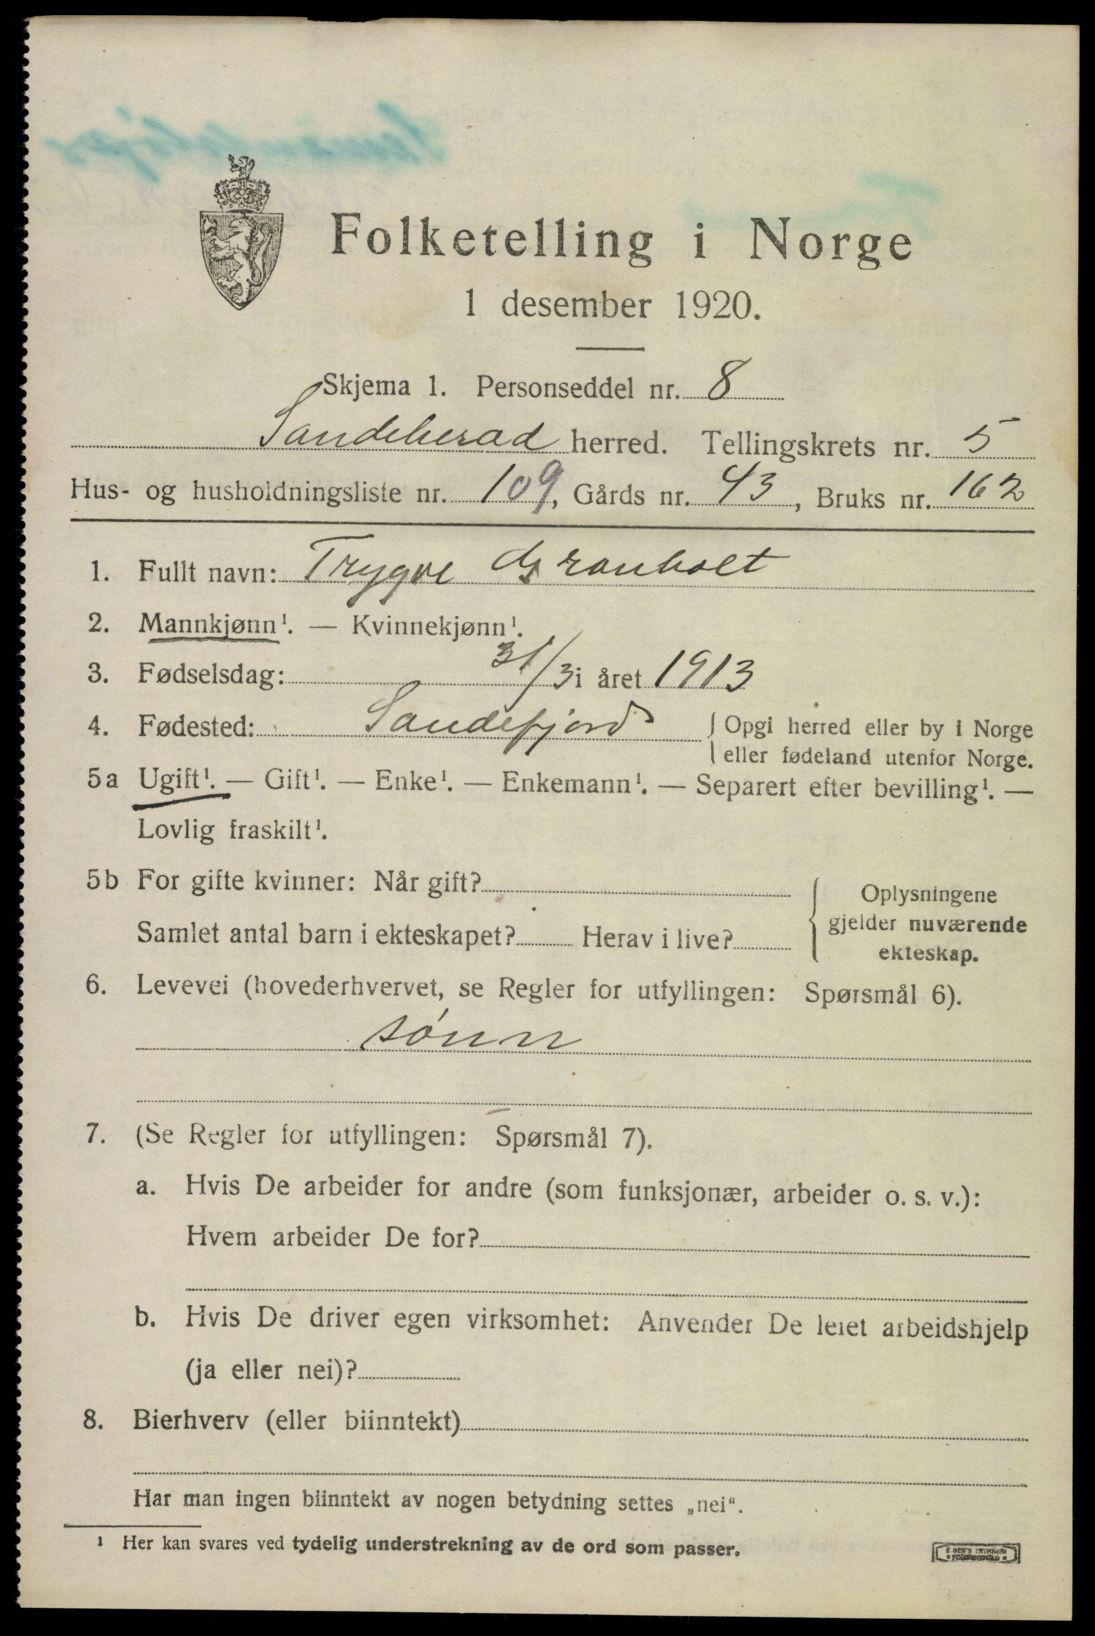 Folketelling i Norge
1 desember 1920.
Skjema 1. Personseddel nr. 8
Sandeherad herred. Tellingskrets nr. 5
Hus- og husholdningsliste nr. 109, Gårds nr. 43, Bruks nr. 162
1. Fullt navn: Trygve Granholt
2. Mannkjønn¹. — Kvinnekjønn¹.
3. Fødselsdag: 31/3 i året 1913
4. Fødested: Sandefjord { Opgi herred eller by i Norge
eller fødeland utenfor Norge.
5a Ugift¹. — Gift¹. — Enke¹. — Enkemann¹. — Separert efter bevilling¹. —
Lovlig fraskilt¹.
5b For gifte kvinner: Når gift?
Samlet antal barn i ekteskapet? Herav i live?
{ Oplysningene
gjelder nuværende
ekteskap.
6. Levevei (hovederhvervet, se Regler for utfyllingen: Spørsmål 6).
sønn
7. (Se Regler for utfyllingen: Spørsmål 7).
a. Hvis De arbeider for andre (som funksjonær, arbeider o. s. v.):
Hvem arbeider De for?
b. Hvis De driver egen virksomhet: Anvender De leiet arbeidshjelp
(ja eller nei)?
8. Bierhverv (eller biinntekt)
Har man ingen biinntekt av nogen betydning settes „nei“.
¹ Her kan svares ved tydelig understrekning av de ord som passer.